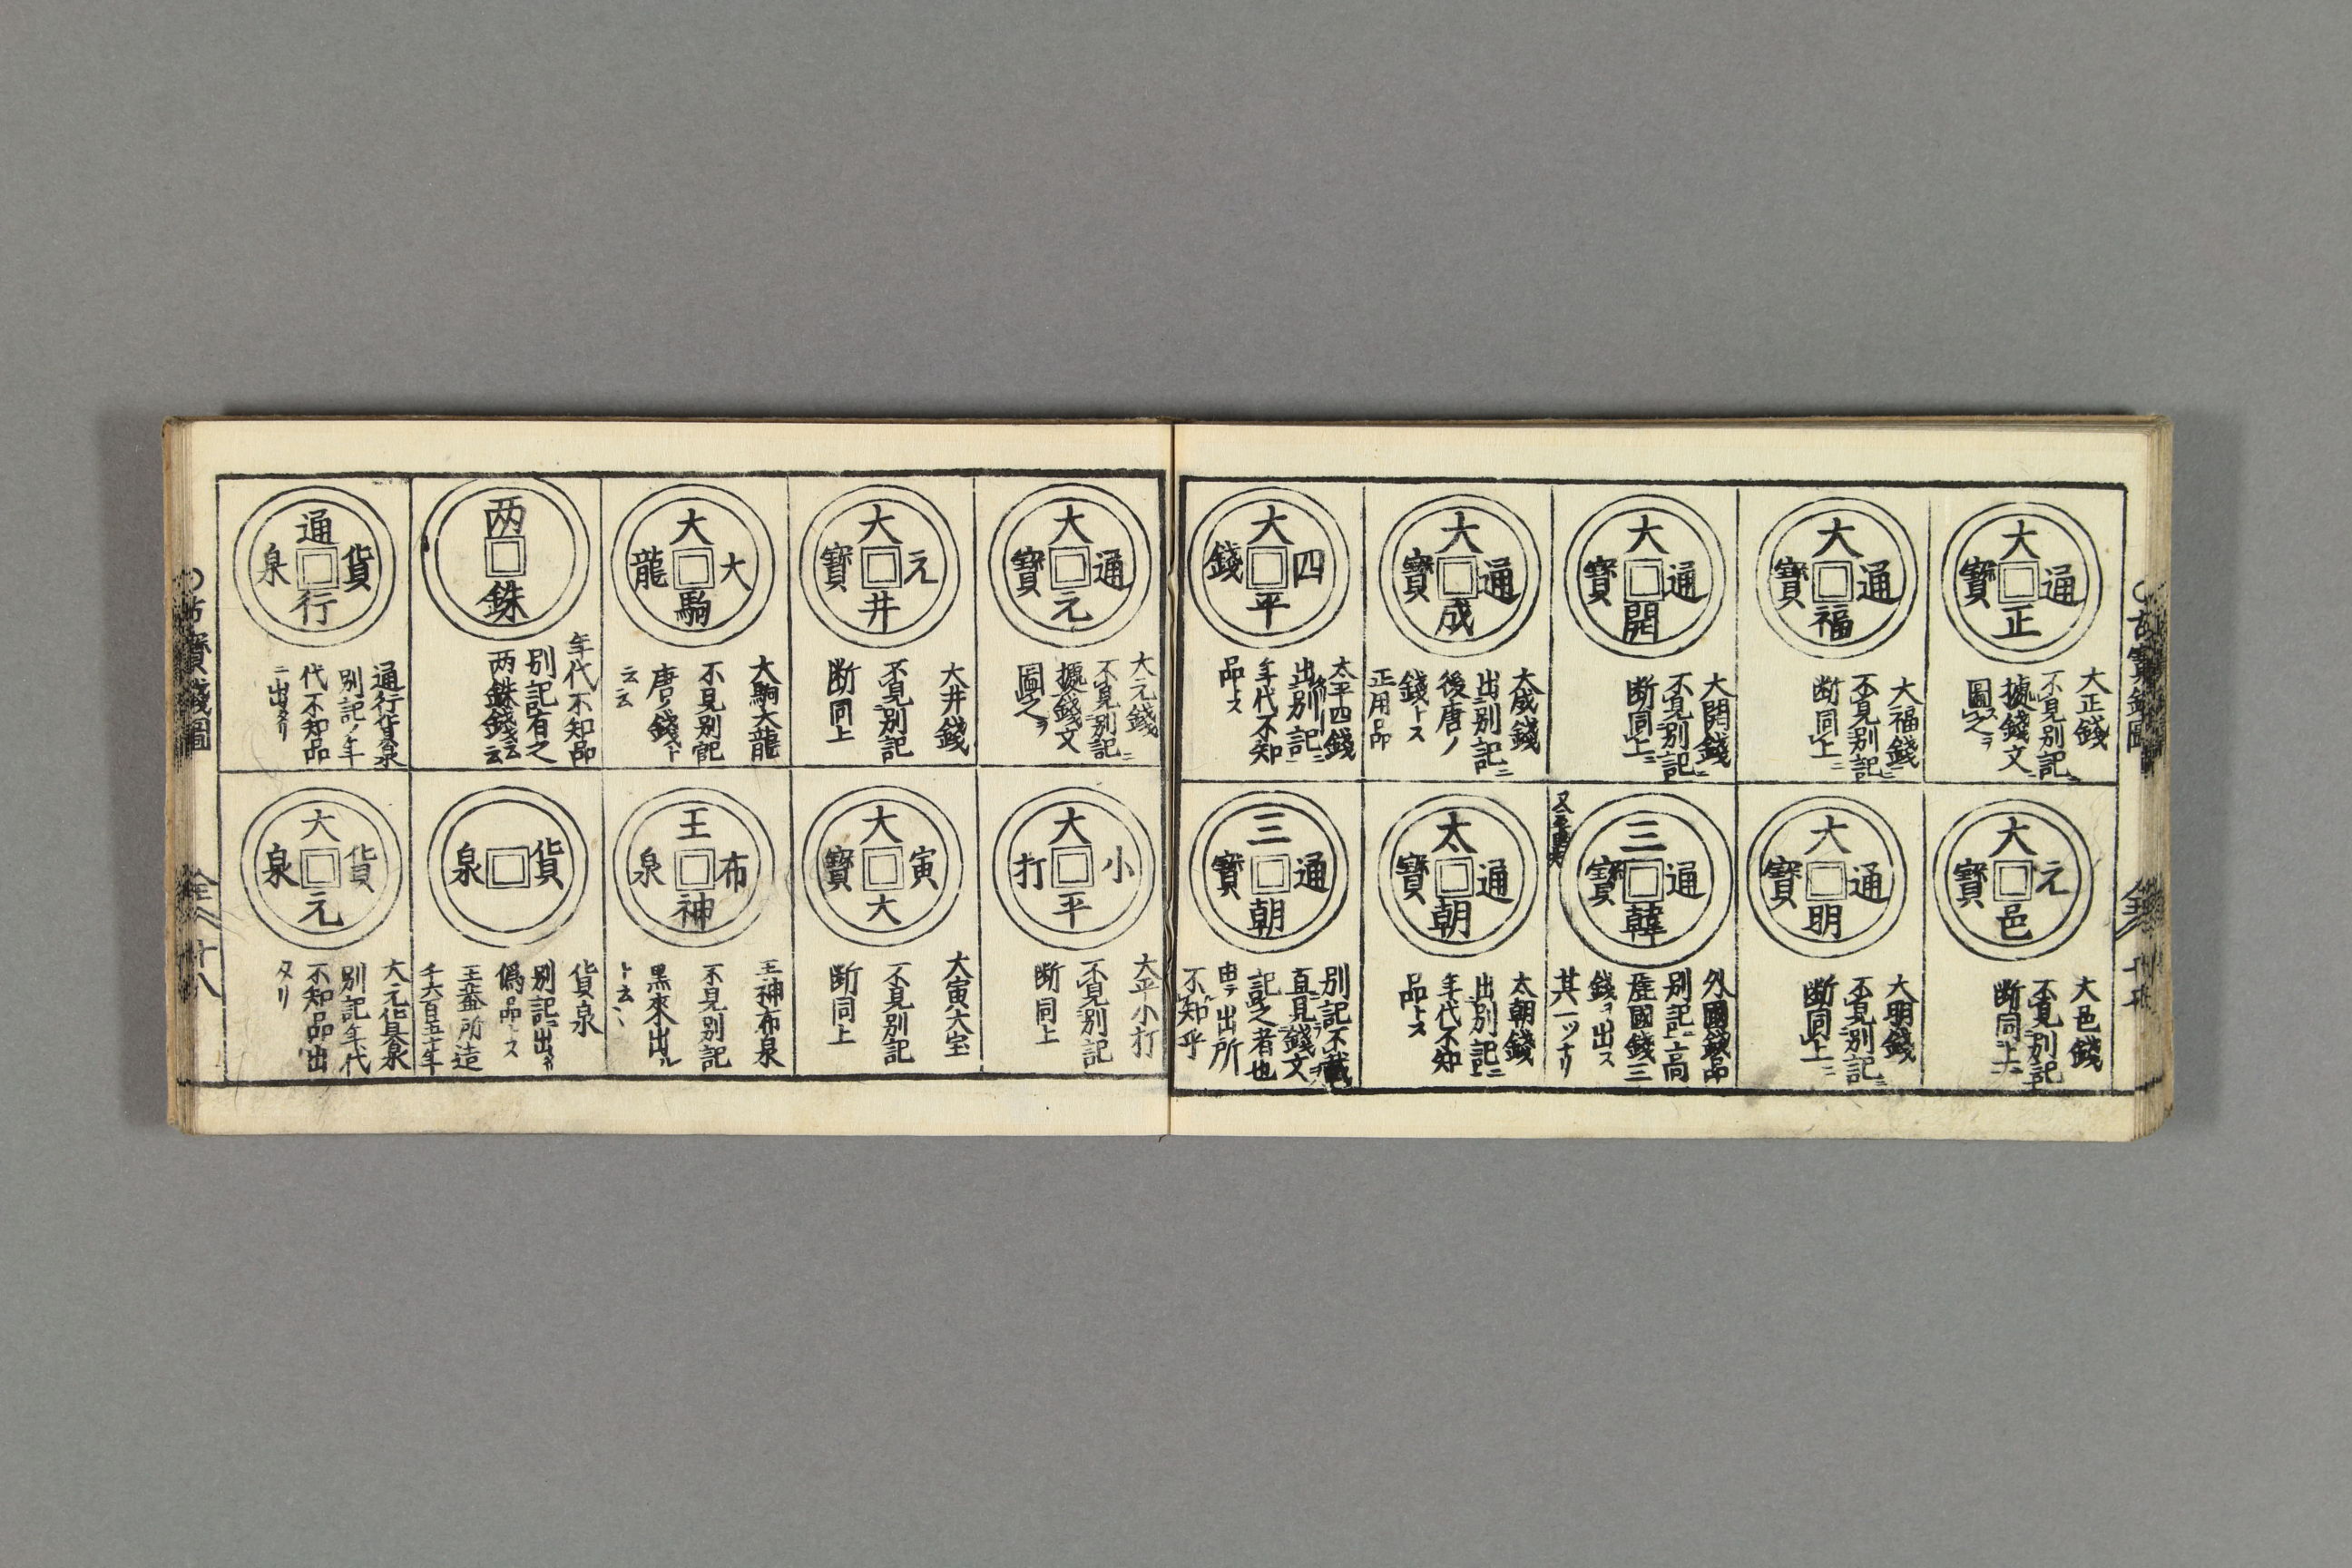 大正通寶
大正錢
不見別記ニ
據錢文
圖之ヲ
大福通寶
大福錢
不見別記ニ
断同上ニ
大開通寶
大開錢
不見別記ニ
断同上ニ
大成通寶
大成錢
出別記ニ
後唐ノ
錢トス
正用品
大平四錢
太平四錢
出別記ニ
年代不知
品トス
大邑元寶
大邑錢
不見別記ニ
断同上ニ
大明通寶
大明錢
不見別記ニ
断同上ニ
三韓通寶
外國錢品
別記ニ高
産國錢三
錢ヲ出ス
其一ツナリ
太朝通寶
太朝錢
出別記ニ
年代不知
品トス
三朝通寶
別記不載
直見錢文
記之者也
由テ出所
不知乎
大元通寶
大元錢
不見別記ニ
據錢文
圖之ヲ
大井元寶
大井錢
不見別記
断同上
大駒大龍
大駒大龍
不見別記
唐ノ錢ト
云云
两銖
年代不知品
別記有之
两銖錢云云
通行貨泉
通行貨泉
別記ノ年
代不知品
ニ出タリ
大平小打
大平小打
不見別記
断同上
大大寅寶
大寅大宝
不見別記
断同上
王神布泉
王神布泉
不見別記
黒來出ル
ト云々
貨泉
貨泉
別記ニ出ス
偽品トス
王莽所造
千六百五十年
大元貨泉
大元貨泉
別記年代
不知品出
タリ